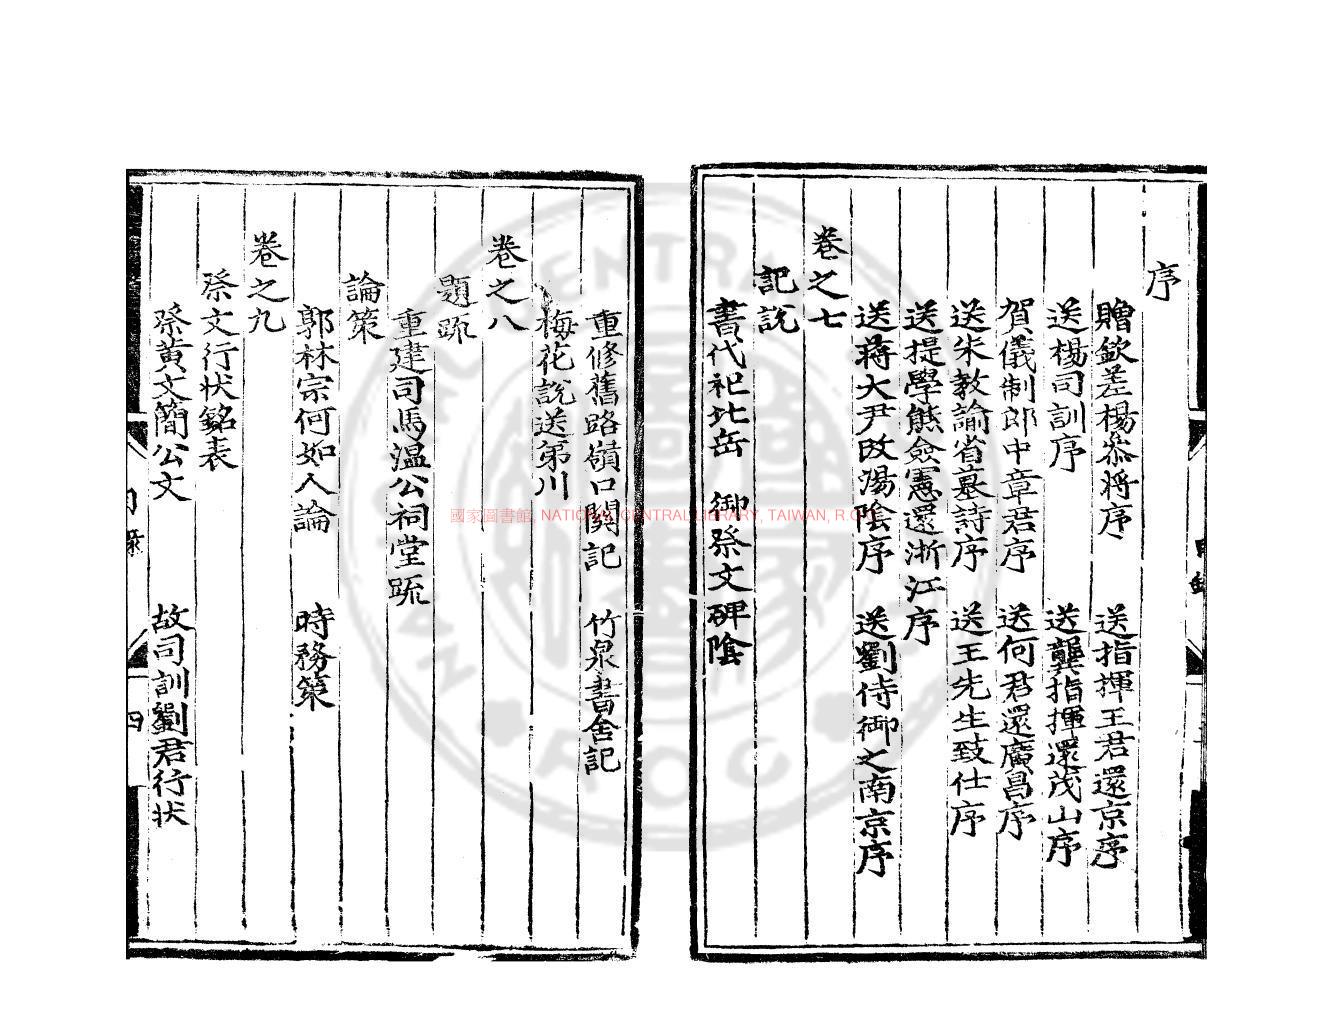 序
贈欽差楊叅将序 送指揮王君還京序
送楊司訓序 送龔指揮還茂山序
賀儀制郎中章君序 送何君還廣昌序
送朱教諭省墓詩序 送王先生致仕序
送提學熊僉憲還浙江序
送蔣大尹改湯陰序 送劉侍御之南京序
卷之七
記説
書代祀北岳 御祭文碑隂
重修舊路嶺口関記 竹泉書舍記
梅花説送第川
卷之八
題䟽
重建司馬温公祠堂䟽
論策
郭林宗何如人論 時務策
卷之九
祭文行状銘表
祭黄文簡公文 故司訓劉君行状
目録 四
國家圖書館, NATIONAL CENTRAL LIBRARY, TAIWAN, R.O.C